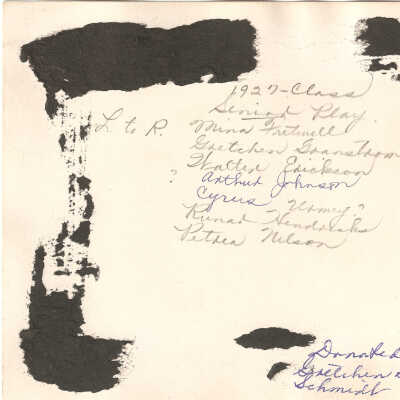 1927-Class
Senior Play
L to R. Mina Fretwell
Gretchen Granstrom
" Walter Erickson
Arthur Johnson
Cyrus "Urmey"
Runar Hendricks
Petrea Nelson
Donated
Gretchen
Schmidt